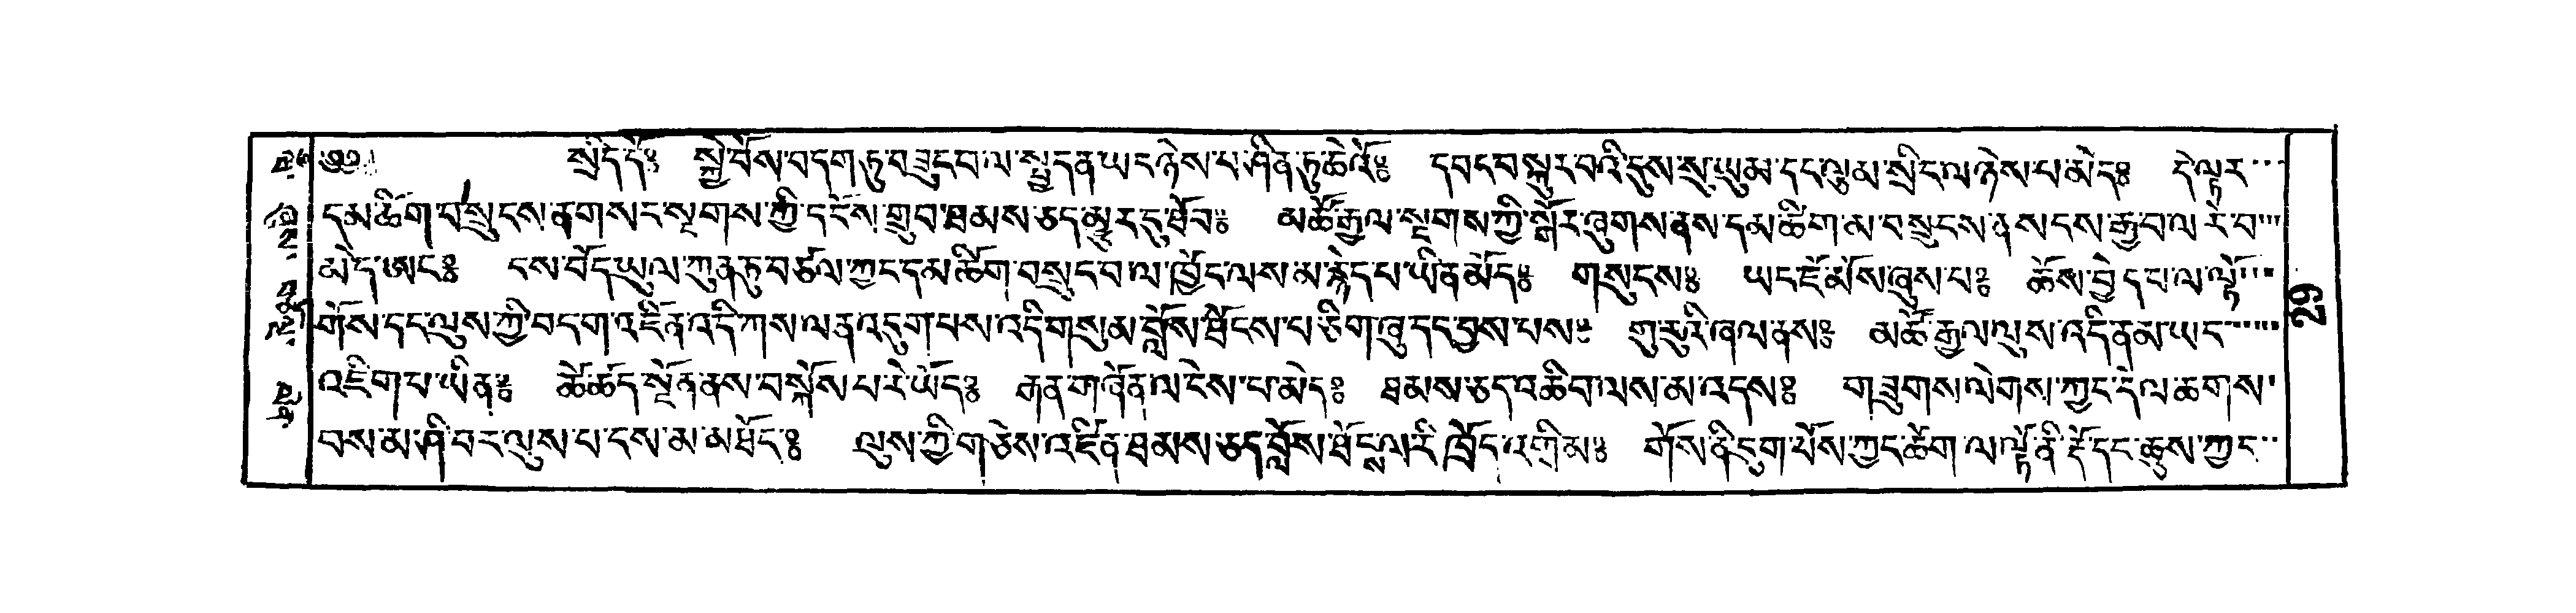 ༄༅། སྲིད་དེ༔ སྐྱེ་བོས་བདག་ཏུ་བཟུང་བ་ལ་སྤྱད་ན་ཡང་ཉེས་པ་ཤིན་ཏུ་ཆེའོ༔ དབང་བསྐུར་བའི་དུས་སུ་ཡུམ་དང་ལྕམ་སྲིང་ལ་ཉེས་པ་མེད༔ དེ་ལྟར་
དམ་ཚིག་བསྲུངས་ན་གསང་སྔགས་ཀྱི་དངོས་གྲུབ་ཐམས་ཅད་མྱུར་དུ་ཐོབ༔ མཚོ་རྒྱལ་སྔགས་ཀྱི་སྒོར་ཞུགས་ནས་དམ་ཚིག་མ་བསྲུངས་ནས་སངས་རྒྱ་བ་ལ་རེ་བ་
མེད་ཨང༔ ངས་བོད་ཡུལ་ཀུན་ཏུ་བཙལ་ཀྱང་དམ་ཚིག་བསྲུང་བ་ལ་ཁྱོད་ལས་མ་རྙེད་པ་ཡིན་མོད༔ གསུངས༔ ཡང་ཇོ་མོས་ཞུས་པ༔ ཆོས་བྱེད་པ་ལ་ལྟོ་
གོས་དང་ལུས་ཀྱི་བདག་འཛིན་འདི་ཀས་ལན་འདུག་པས་འདི་གསུམ་བློས་ཐོངས་པ་ཅིག་ཞུ་དང་བྱས་པས༔ གུ་རུའི་ཞལ་ནས༔ མཚོ་རྒྱལ་ལུས་འདི་ནམ་ཡང་
འཇིག་པ་ཡིན༔ ཚེ་ཚད་སྔོན་ནས་བསྐོས་པ་རེ་ཡོད༔ རྒན་གཞོན་ལ་ངེས་པ་མེད༔ ཐམས་ཅད་འཆི་བ་ལས་མ་འདས༔ གཟུགས་ལེགས་ཀྱང་དེ་ལ་ཆགས་
པས་མ་ཤི་བར་ལུས་པ་ངས་མ་མཐོང༔ ལུས་ཀྱི་གཅེས་འཛིན་ཐམས་ཅད་བློས་ཐོང་ལ་རི་ཁྲོད་འགྲིམ༔ གོས་ནི་དུག་པོས་ཀྱང་ཆོག་ལ་ལྟོ་ནི་རྡོ་དང་ཆུས་ཀྱང་